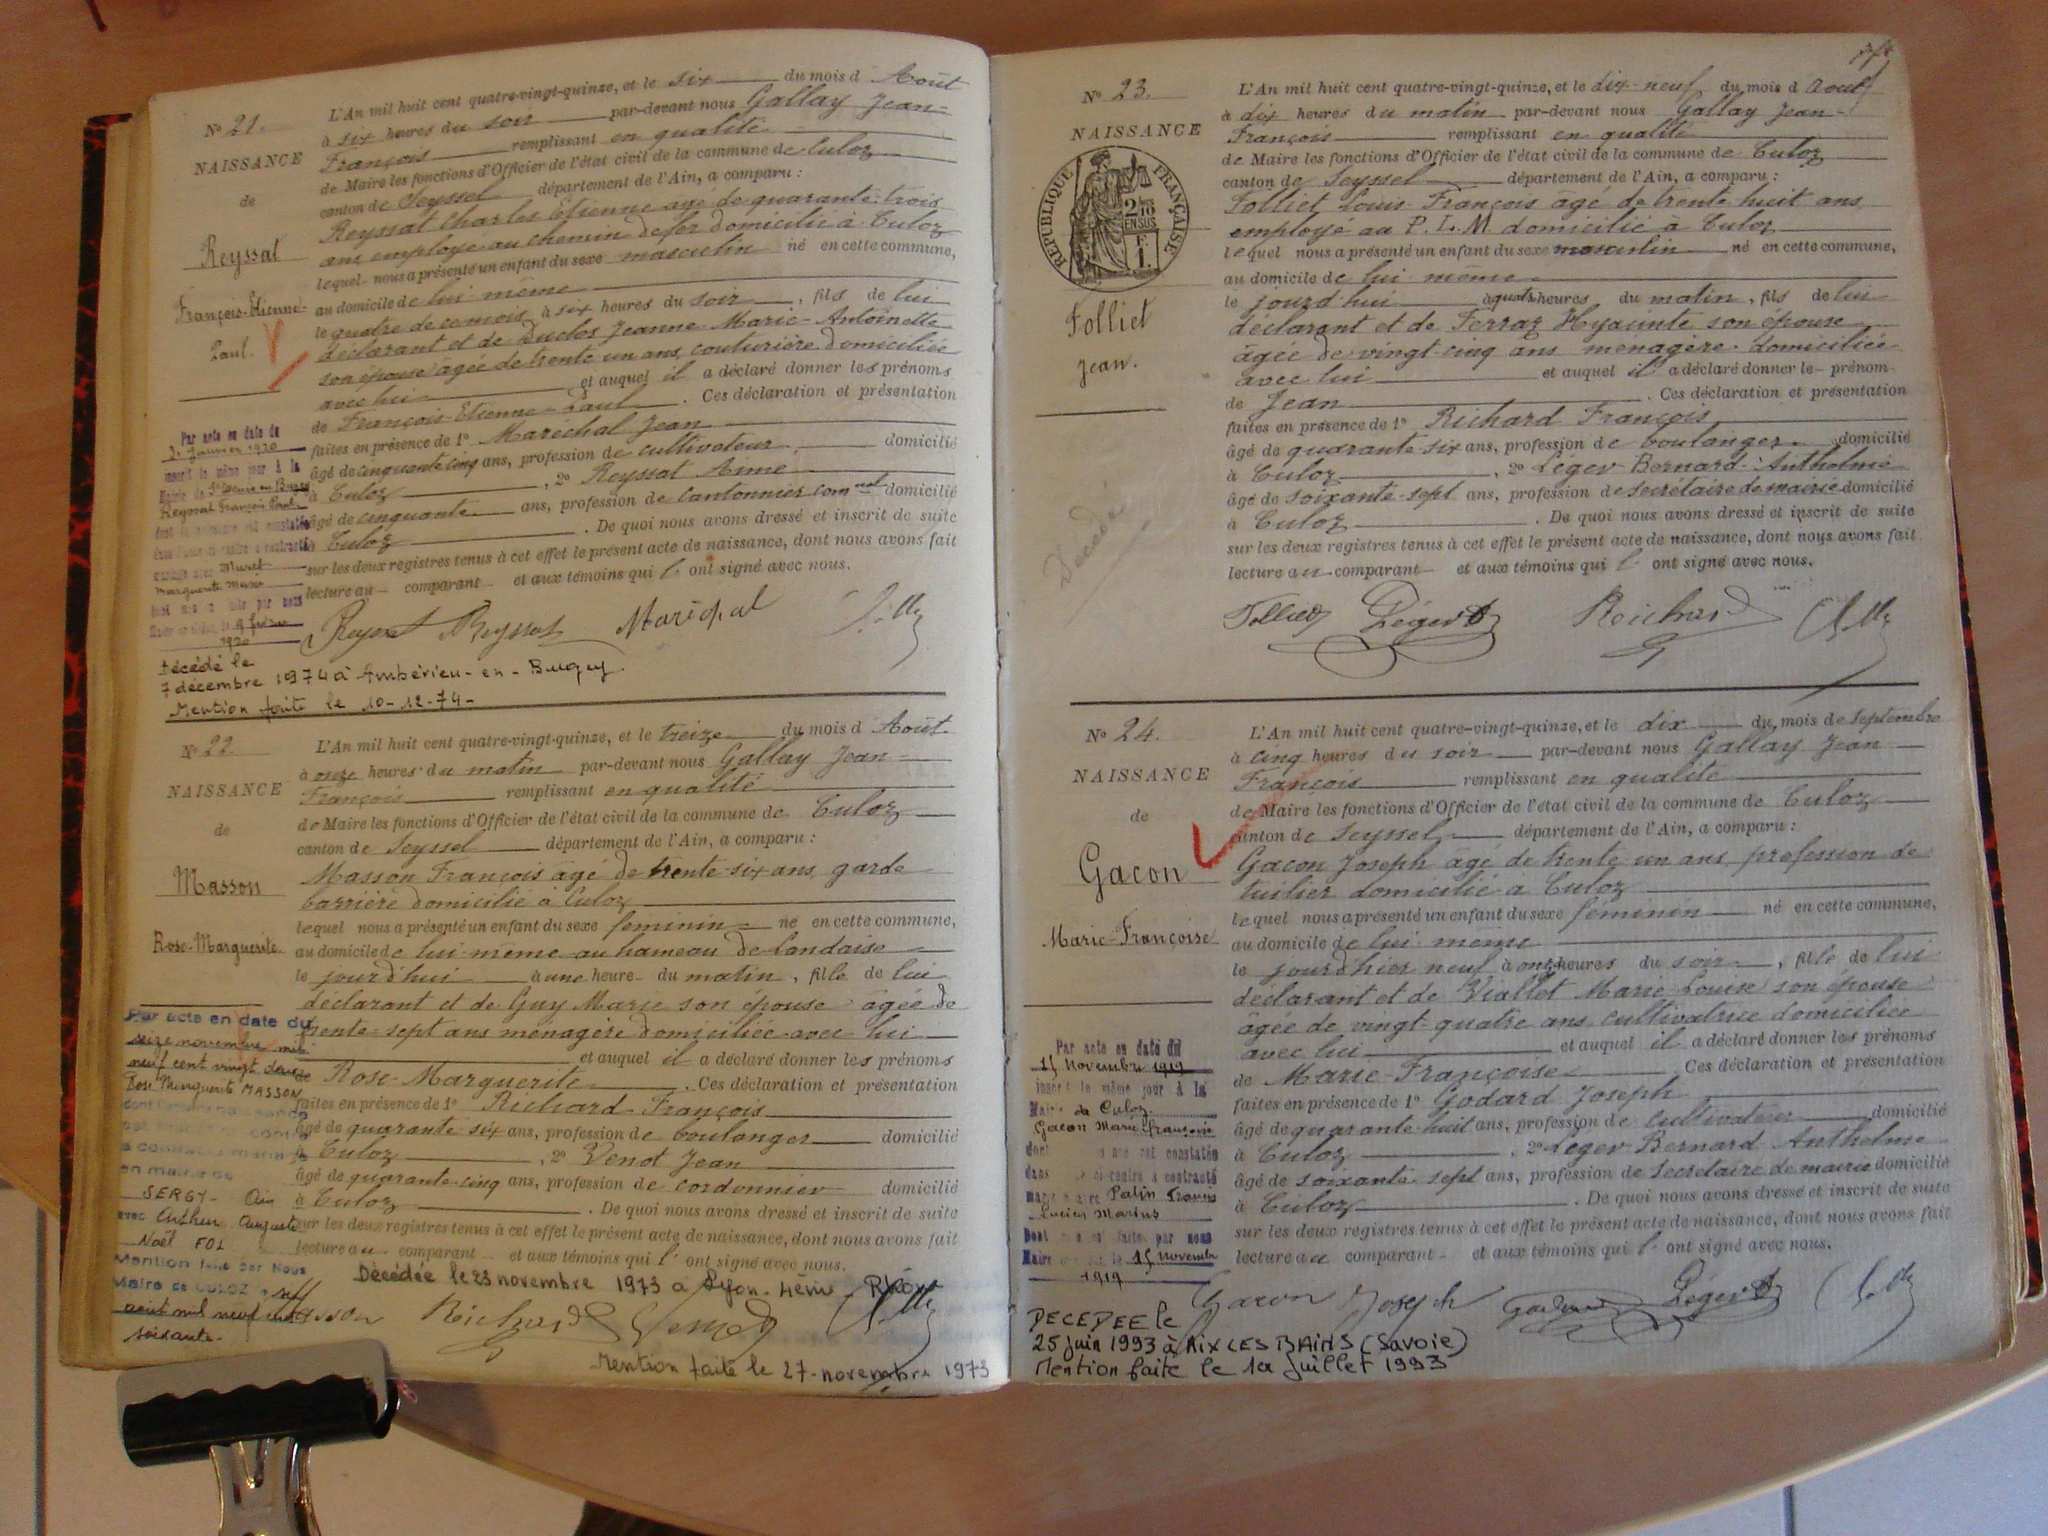 N° 21.
NAISSANCE
de
Reyssat
François-Etienne-
Paul.
L'An mil huit cent quatre-vingt-quinze, et le six du mois d'Août
à six heures du soir par-devant nous Gallay Jean-
François remplissant en qualité
de Maire les fonctions d'Officier de l'état civil de la commune de Culoz
canton de Seyssel département de l'Ain, a comparu :
Reyssat Charles Etienne agé de quarante-trois
ans employé au chemin de fer domicilié à Culoz
lequel nous a présenté un enfant du sexe masculin né en cette commune,
au domicile de lui même
le quatre de ce mois à six heures du soir, fils de lui
déclarant et de Duclos Jeanne-Marie-Antoinette
son épouse agée de trente un ans, couturière domiciliée
avec lui et auquel il a déclaré donner les prénoms
de François-Etienne-Paul. Ces déclaration et présentation
faites en présence de 1° Maréchal Jean
âgé de cinquante cinq ans, profession de cultivateur domicilié
à Culoz, 2° Reyssat Aimé
âgé de cinquante ans, profession de cantonnier comnal domicilié
à Culoz. De quoi nous avons dressé et inscrit de suite
sur les deux registres tenus à cet effet le présent acte de naissance, dont nous avons fait
lecture au comparant et aux témoins qui l'ont signé avec nous.
Reyssat Reyssat Maréchal
Par acte en date du
Janvier 1920
inscrit le même jour à la
Mairie de
Reyssat François Paul
avec Muret
Marguerite Marie
1920
Décédé le
7 décembre 1974 à Ambérieu-en-Bugey.
Mention faite le 10-12-74-
N° 22.
NAISSANCE
de
Masson
Rose-Marguerite
L'An mil huit cent quatre-vingt-quinze, et le treize du mois d'Août.
à onze heures du matin par-devant nous Gallay Jean-
François remplissant en qualité
de Maire les fonctions d'Officier de l'état civil de la commune de Culoz
canton de Seyssel département de l'Ain, a comparu :
Masson François âgé de trente-six ans, garde
barrière domicilié à Culoz
lequel nous a présenté un enfant du sexe féminin né en cette commune,
au domicile de lui-même au hameau de Landaise
le jourd'hui à une heure du matin, fille de lui
déclarant et de Guy Marie son épouse âgée de
trente-sept ans ménagère domiciliée avec lui
et auquel il a déclaré donner les prénoms
de Rose-Marguerite. Ces déclaration et présentation
faites en présence de 1° Richard François
âgé de quarante six ans, profession de boulanger domicilié
à Culoz, 2° Venot Jean
âgé de quarante-cinq ans, profession de cordonnier domicilié
à Culoz. De quoi nous avons dressé et inscrit de suite
sur les deux registres tenus à cet effet le présent acte de naissance, dont nous avons fait
lecture au comparant et aux témoins qui l'ont signé avec nous.
Décédée le 23 novembre 1973 à Lyon-4ème Rhône
Masson Richard Venot
Mention faite le 27-novembre 1973
Par acte en date du
seize novembre mil
neuf cent vingt deux
Rose Marguerite MASSON
en mairie de
SERGY- Ain
avec Arthur Auguste
Noël FOL
Mention faite par Nous
Maire de CULOZ
août mil neuf cent
soixante.
N° 23.
NAISSANCE
RÉPUBLIQUE FRANÇAISE
2/10 EN SUS
F 1.
Folliet
Jean.
Décédé
L'An mil huit cent quatre-vingt-quinze, et le dix-neuf du mois d'août
à dix heures du matin par-devant nous Gallay Jean-
François remplissant en qualité
de Maire les fonctions d'Officier de l'état civil de la commune de Culoz
canton de Seyssel département de l'Ain, a comparu :
Folliet Louis-François âgé de trente huit ans
employé au P.L.M domicilié à Culoz
lequel nous a présenté un enfant du sexe masculin né en cette commune,
au domicile de lui même
le jourd'hui à quatre heures du matin, fils de lui
déclarant et de Ferraz Hyacinte son épouse
âgée de vingt-cinq ans ménagère domiciliée
avec lui et auquel il a déclaré donner le prénom
de Jean. Ces déclaration et présentation
faites en présence de 1° Richard François
âgé de quarante six ans, profession de boulanger domicilié
à Culoz, 2° Léger Bernard-Anthelme
âgé de soixante-sept ans, profession de secrétaire de mairie domicilié
à Culoz. De quoi nous avons dressé et inscrit de suite
sur les deux registres tenus à cet effet le présent acte de naissance, dont nous avons fait
lecture au comparant et aux témoins qui l'ont signé avec nous.
Folliet Léger B Richard
N° 24.
NAISSANCE
de
Gacon
Marie-Françoise
L'An mil huit cent quatre-vingt-quinze, et le dix du mois de septembre
à cinq heures du soir par-devant nous Gallay Jean
François remplissant en qualité
de Maire les fonctions d'Officier de l'état civil de la commune de Culoz
canton de Seyssel département de l'Ain, a comparu :
Gacon Joseph âgé de trente un ans, profession de
tuilier domicilié à Culoz
lequel nous a présenté un enfant du sexe féminin né en cette commune,
au domicile de lui même
le jourd'hier neuf à onze heures du soir, fille de lui
déclarant et de Viallet Marie-Louise son épouse
âgée de vingt-quatre ans, cultivatrice domiciliée
avec lui et auquel il a déclaré donner les prénoms
de Marie-Françoise. Ces déclaration et présentation
faites en présence de 1° Godard Joseph
âgé de quarante-huit ans, profession de cultivateur domicilié
à Culoz, 2° Léger Bernard Anthelme
âgé de soixante-sept ans, profession de secrétaire de mairie domicilié
à Culoz. De quoi nous avons dressé et inscrit de suite
sur les deux registres tenus à cet effet le présent acte de naissance, dont nous avons fait
lecture au comparant et aux témoins qui l'ont signé avec nous.
Gacon Joseph Godard Léger B
Par acte en date du
15 Novembre 1919
inscrit le même jour à la
Mairie de Culoz
Gacon Marie-Françoise
dont est constatée
dans ci-contre a contracté
mariage avec Patin Francis
Lucien Marius
faite par nous
Maire le 15 novembre
1919
DECEDEE le
25 juin 1993 à AIX LES BAINS (Savoie)
Mention faite le 1er juillet 1993